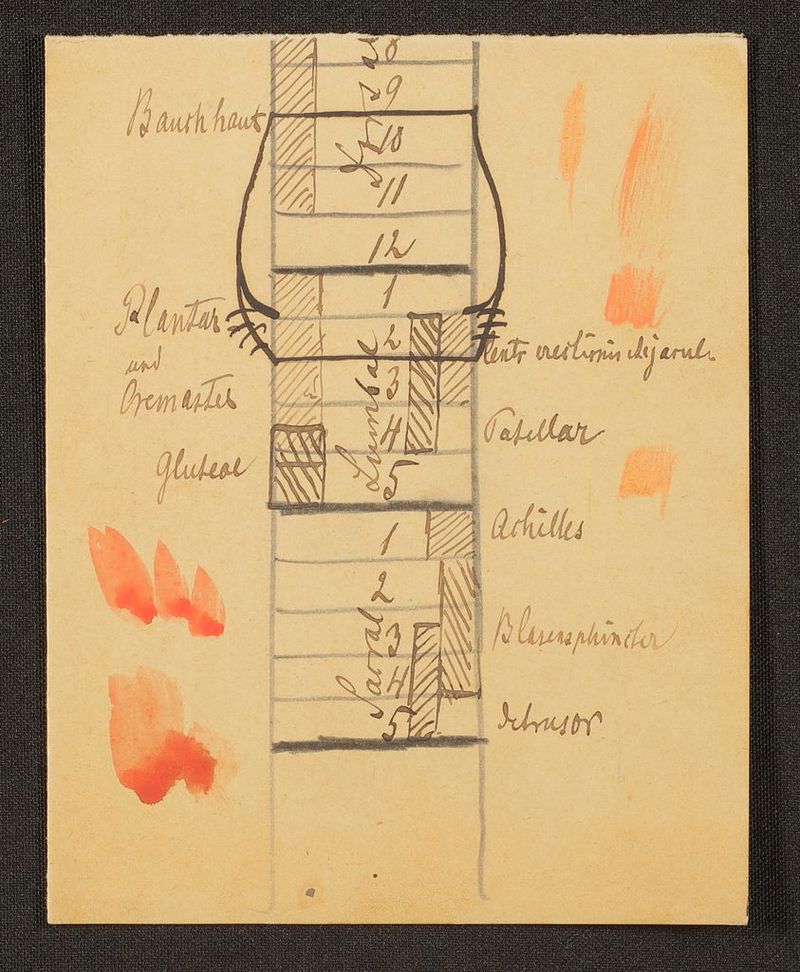 8
9
Bauchhaut
10
Dorsal
11
12
1
Plantar
und
Cremaster
2
Centr erectionis
3
4
Patellar
Gluteae
5
Lumbal
1
Achilles
2
3
Blasensphincter
4
Sacral
5
Detrusor